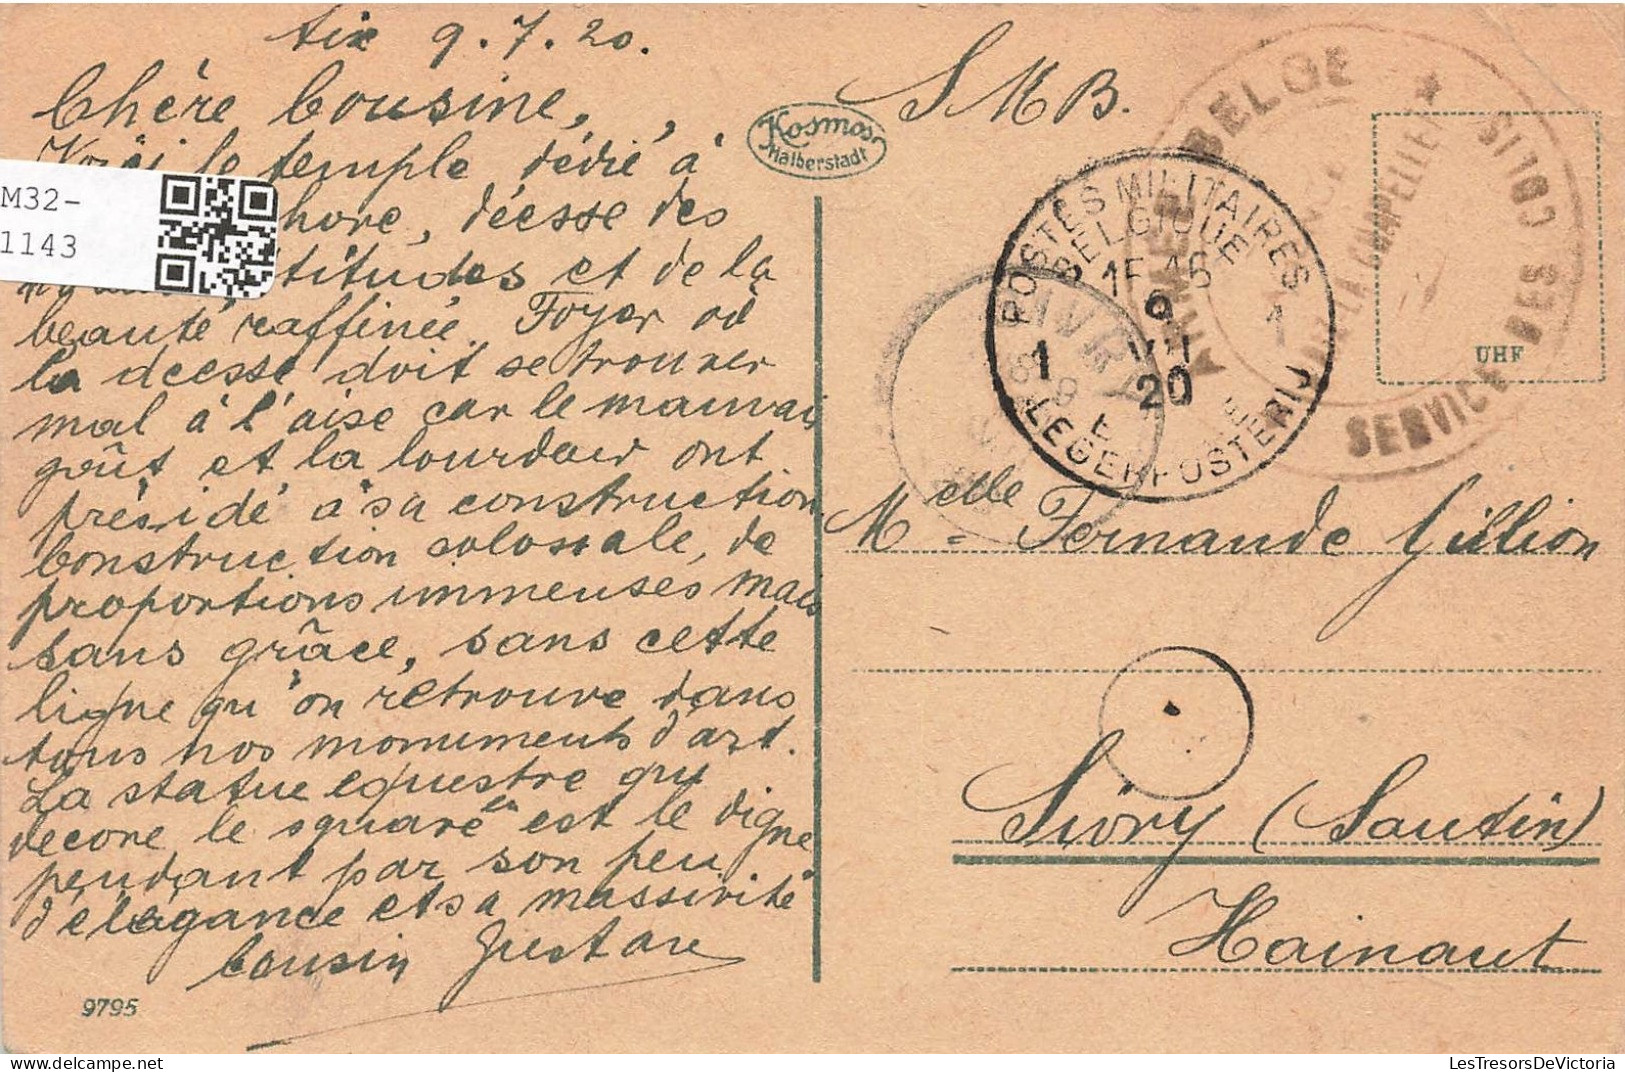 Aix 9.7.20.
Chère Cousine,
Voici le temple dédié à
hore, déesse des
titudes et de la
beauté raffinée. Foyer où
la déesse doit se trouver
mal à l'aise car le mauvais
goût et la lourdeur ont
présidé à sa construction.
Construction colossale, de
proportions immenses mais
sans grâce, sans cette
ligne qu'on retrouve dans
tous nos monuments d'art.
La statue equestre qui
decore le square en est le digne
pendant par son peu
d'élégance et sa massivité
Cousin Gustave
9795
Kosmos
Halberstadt
S.M.B.
POSTES MILITAIRES
BELGIQUE
15-16
9
VII
20
1 1
LEGERPOSTERIJ
ARMEE BELGE
AIX LA CHAPELLE
SERVICE DES COLIS
SIVRY
UHF
Melle Fernande Gillion
Sivry (Sautin)
Hainaut
M32-
1143
LesTresorsDeVictoria